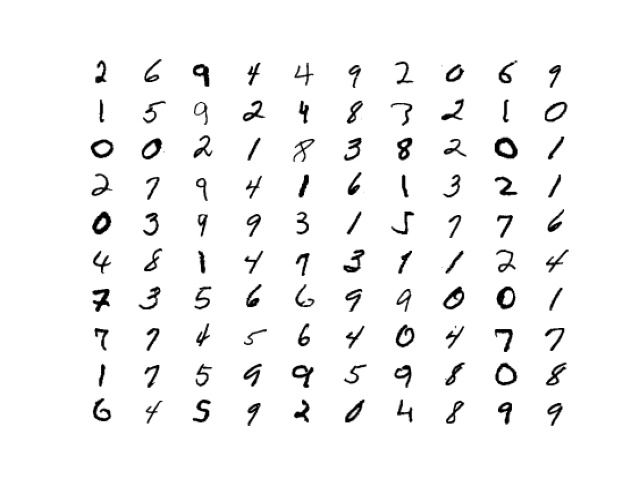 2 6 9 4 4 9 2 0 6 9
1 5 9 2 4 8 3 2 1 0
0 0 2 1 8 3 8 2 0 1
2 7 9 4 1 6 1 3 2 1
0 3 9 9 3 1 5 7 7 6
4 8 1 4 7 3 1 1 2 4
7 3 5 6 6 9 9 0 0 1
7 7 4 5 6 4 0 4 7 7
1 7 5 9 9 5 9 8 0 8
6 4 5 9 2 0 4 8 9 9